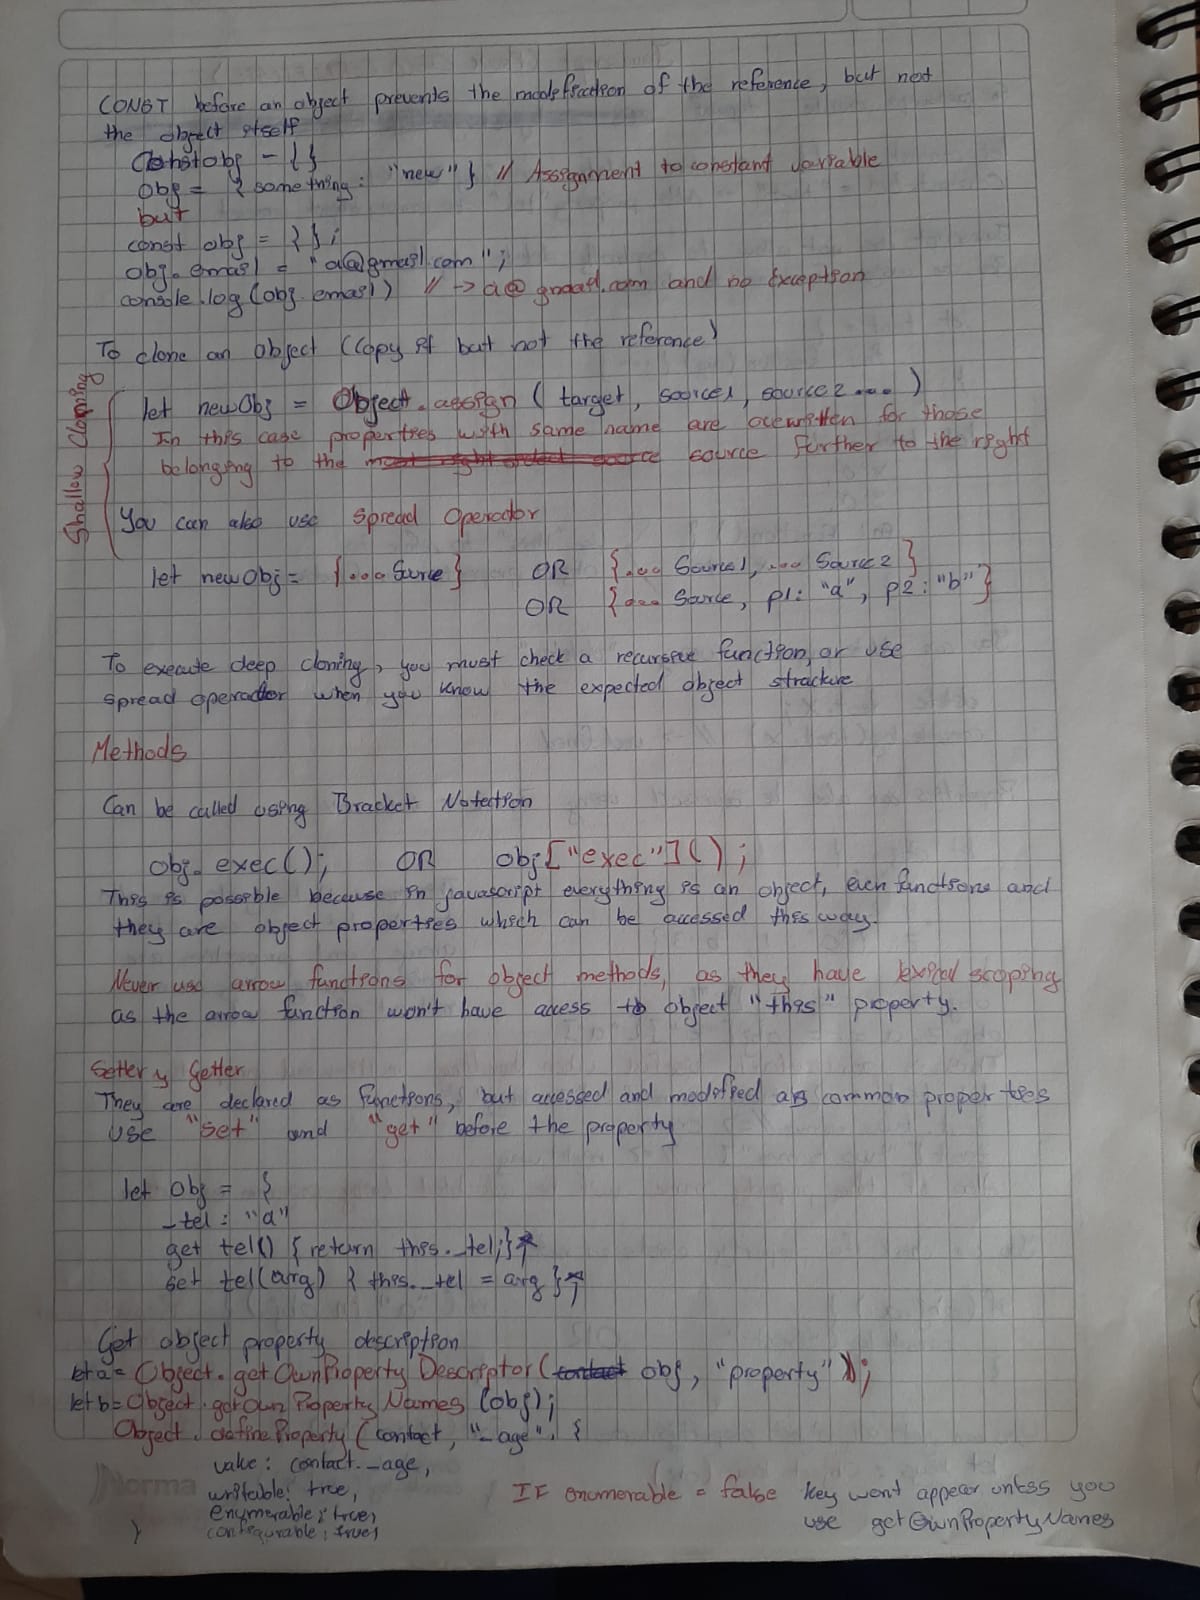 CONST before an object prevents the modification of the reference, but not
the object itself
Const obj = { }
Obj = { something: "new" } // Assignment to constant variable
but
const obj = { };
obj.email = "a@gmail.com";
console.log(obj.email) // -> a@gmail.com and no Exception
To clone an object (Copy it but not the reference)
Shallow Cloning
let newObj = Object.assign ( target, source1, source2 .... )
In this case properties with same name are overwritten for those
belonging to the source further to the right
You can also use Spread Operador
let newObj = {... Source} OR {... Source1, ... Source2 }
OR {... Source, p1: "a", p2: "b"}
To execute deep cloning, you must check a recursive function, or use
spread operador when you know the expected object structure
Methods
Can be called using Bracket Notection
obj.exec(); OR obj["exec"]();
This is possible because in javascript everything is an object, even functions and
they are object properties which can be accessed this way.
Never use arrow functions for object methods, as they have lexical scoping
as the arrow function won't have access to object "this" property.
Setter y Getter
They are declared as functions, but accessed and modified as common properties
use "set" and "get" before the property
let obj = {
_tel: "a"
get tel() { return this._tel;}
set tel(arg) { this._tel = arg }
Get object property description
let a = Object.getOwnPropertyDescriptor( obj, "property" );
let b = Object.getOwnPropertyNames (obj);
Object.defineProperty ( contact, "_age", {
value: contact._age,
writable: true,
enumerable: true,
configurable: true,
}
IF enumerable = false key wont appear unless you
use getOwnPropertyNames
Norma